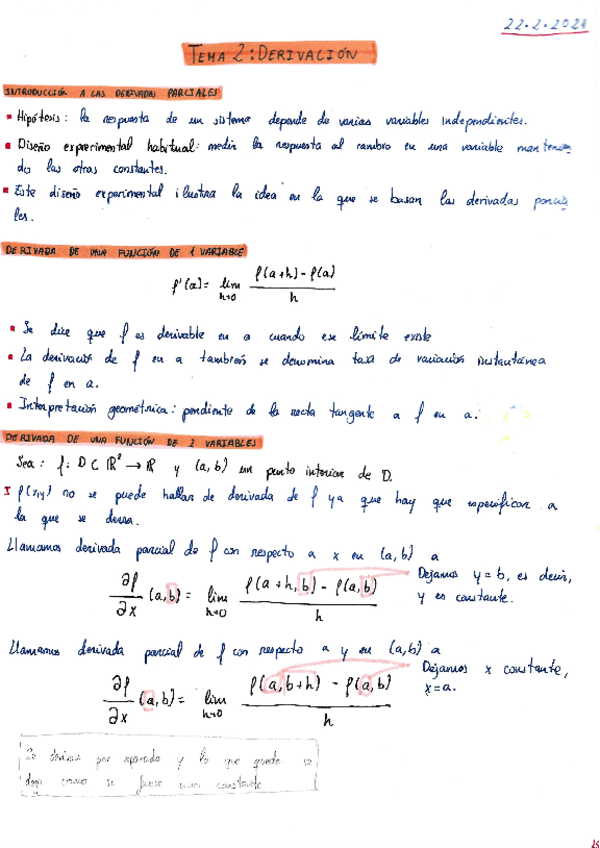 22-2-2021
TEMA 2: DERIVACIÓN
INTRODUCCIÓN A LAS DERIVADAS PARCIALES
▪ Hipótesis: la respuesta de un sistema depende de varias variables independientes.
▪ Diseño experimental habitual: medir la respuesta al cambio en una variable mantenien
do las otras constantes.
▪ Este diseño experimental ilustra la idea en la que se basan las derivadas parcia
les.
DERIVADA DE UNA FUNCIÓN DE 1 VARIABLE
f'(a) = lim h→0 (f(a+h) - f(a)) / h
▪ Se dice que f es derivable en a cuando ese límite existe
▪ La derivación de f en a también se denomina tasa de variación instantánea
de f en a.
▪ Interpretación geométrica: pendiente de la recta tangente a f en a.
DERIVADA DE UNA FUNCIÓN DE 2 VARIABLES
Sea: f: D ⊂ ℝ² → ℝ y (a,b) un punto interior de D.
f(x,y) no se puede hallar de derivada de f ya que hay que especificar a
la que se deriva.
Llamamos derivada parcial de f con respecto a x en (a,b) a
∂f/∂x (a,b) = lim h→0 (f(a+h,b) - f(a,b)) / h
Dejamos y=b, es decir,
y es constante.
Llamamos derivada parcial de f con respecto a y en (a,b) a
∂f/∂x (a,b) = lim h→0 (f(a,b+h) - f(a,b)) / h
Dejamos x constante,
x=a.
Se derivan por separado y lo que queda se
deja como si fuese una constante